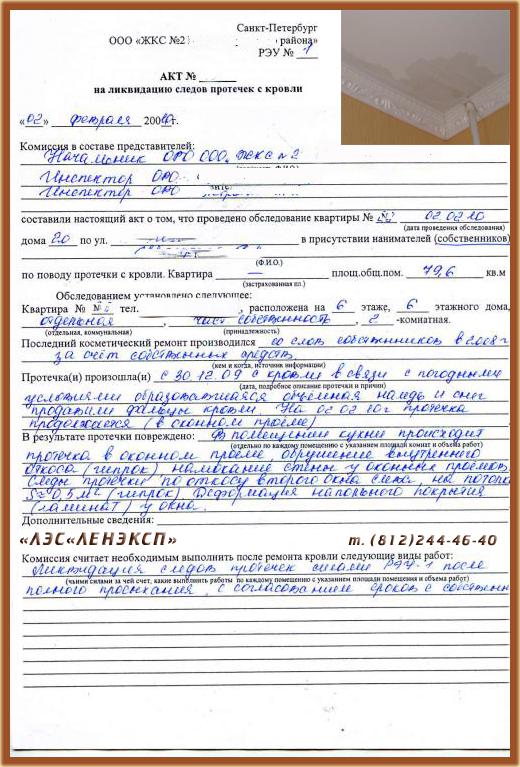 Санкт-Петербург
ООО «ЖКС №2 района»
РЭУ № 1
АКТ №
на ликвидацию следов протечек с кровли
«02» февраля 20010г.
Комиссия в составе представителей:
Начальник ОРО ООО ЖКС №2
Инспектор ОРО
Инспектор ОРО
составили настоящий акт о том, что проведено обследование квартиры № 02.02.10
(дата проведения обследования)
дома 20 по ул. в присутствии нанимателей (собственников)
(Ф.И.О.)
по поводу протечки с кровли. Квартира — площ.общ.пом. 79,6 кв.м
(застрахованная пл.)
Обследованием установлено следующее:
Квартира № тел. , расположена на 6 этаже, 6 этажного дома,
отдельная , част собственность , 2 -комнатная.
(отдельная, коммунальная) (принадлежность)
Последний косметический ремонт производился со слов собственников в 2008г
за счёт собственных средств.
(кем и когда, источник информации)
Протечка(и) произошла(и) с 30.12.09 с кровли в связи с погодными
(дата, подробное описание протечки и причин)
условиями образовавшаяся объемная наледь и снег
продавили фальцы кровли. На 02 02 10г протечка
продолжается (в оконном проёме)
В результате протечки повреждено: В помещении кухни происходит
(отдельно по каждому помещению с указанием площади комнат и объема работ)
протечка в оконном проёме, обрушение внутреннего
откоса (гипрок) намокание стены у оконных проемов.
Следы протечки по откосу второго окна слева, на потолке
S≈0,5м² (гипрок) Деформация напольного покрытия
(ламинат) у окна.
Дополнительные сведения:
«ЛЭС«ЛЕНЭКСП» т. (812)244-46-40
Комиссия считает необходимым выполнить после ремонта кровли следующие виды работ:
Ликвидация следов протечек силами РЭУ-1 после
(чьими силами за чей счет, какие выполнить работы по каждому помещению с указанием площади помещения и объема работ)
полного просыхания, с согласованием сроков с собственн